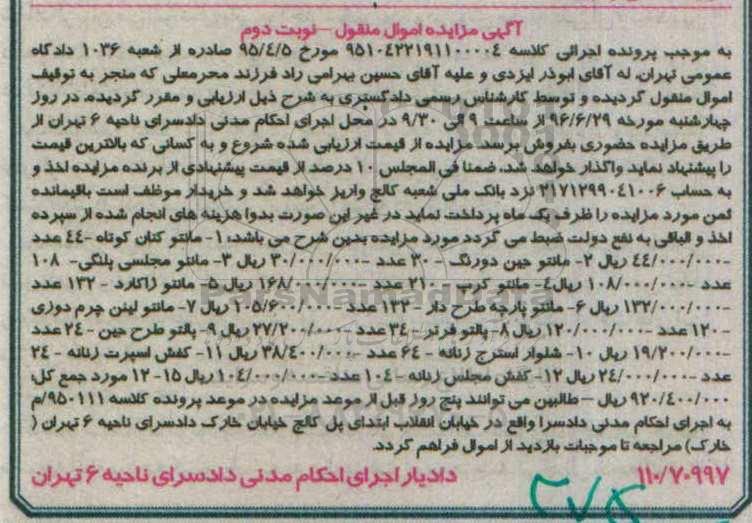 آگهی مزایده اموال منقول – نوبت دوم
به موجب پرونده اجرائی کلاسه ۹۵۱۰۴۲۲۱۹۱۱۰۰۰۰۴ مورخ ۹۵/۴/۵ صادره از شعبه ۱۰۳۶ دادگاه
عمومی تهران، له آقای ابوذر ایزدی و علیه آقای حسین بهرامی راد فرزند محرمعلی که منجر به توقیف
اموال منقول گردیده و توسط کارشناس رسمی دادگستری به شرح ذیل ارزیابی و مقرر گردیده، در روز
چهارشنبه مورخه ۹۶/۶/۲۹ از ساعت ۹ الی ۹/۳۰ در محل اجرای احکام مدنی دادسرای ناحیه ۶ تهران از
طریق مزایده حضوری بفروش برسد. مزایده از قیمت ارزیابی شده شروع و به کسانی که بالاترین قیمت
را پیشنهاد نماید واگذار خواهد شد، ضمنا فی المجلس ۱۰ درصد از قیمت پیشنهادی از برنده مزایده اخذ و
به حساب ۲۱۷۱۲۹۹۰۴۱۰۰۶ نزد بانک ملی شعبه کالج واریز خواهد شد و خریدار موظف است باقیمانده
ثمن مورد مزایده را ظرف یک ماه پرداخت نماید در غیر این صورت بدوا هزینه های انجام شده از سپرده
اخذ و الباقی به نفع دولت ضبط می گردد مورد مزایده بدین شرح می باشد: ۱- مانتو کتان کوتاه -۴۴ عدد
-۴۴/۰۰۰/۰۰۰ ریال ۲- مانتو جین دورنگ - ۳۰ عدد -۳۰/۰۰۰/۰۰۰ ریال ۳- مانتو مجلسی پلنگی- ۱۰۸
عدد -۱۰۸/۰۰۰/۰۰۰ ریال ۴- مانتو کرپ - ۲۱۰ عدد -۱۶۸/۰۰۰/۰۰۰ ریال ۵- مانتو ژاکارد - ۱۳۲ عدد
-۱۳۲/۰۰۰/۰۰۰ ریال ۶- مانتو پارچه طرح دار - ۱۳۲ عدد -۱۰۵/۶۰۰/۰۰۰ ریال ۷- مانتو لینن چرم دوزی
-۱۲۰ عدد -۱۲۰/۰۰۰/۰۰۰ ریال ۸- پالتو فرتر - ۳۴ عدد -۲۷/۲۰۰/۰۰۰ ریال ۹- پالتو طرح جین - ۲۴ عدد
-۱۹/۲۰۰/۰۰۰ ریال ۱۰- شلوار استرج زنانه - ۶۴ عدد -۳۸/۴۰۰/۰۰۰ ریال ۱۱- کفش اسپرت زنانه - ۲۴
عدد -۲۴/۰۰۰/۰۰۰ ریال ۱۲- کفش مجلس زنانه -۱۰۴ عدد -۱۰۴/۰۰۰/۰۰۰ ریال ۱۵- ۱۲ مورد جمع کل:
۹۲۰/۴۰۰/۰۰۰ ریال – طالبین می توانند پنج روز قبل از موعد مزایده در موعد پرونده کلاسه ۹۵۰۱۱۱/م
به اجرای احکام مدنی دادسرا واقع در خیابان انقلاب ابتدای پل کالج خیابان خارک دادسرای ناحیه ۶ تهران (
خارک) مراجعه تا موجبات بازدید از اموال فراهم گردد.
۱۱۰/۷۰۹۹۷ دادیار اجرای احکام مدنی دادسرای ناحیه ۶ تهران
ParsNamadData